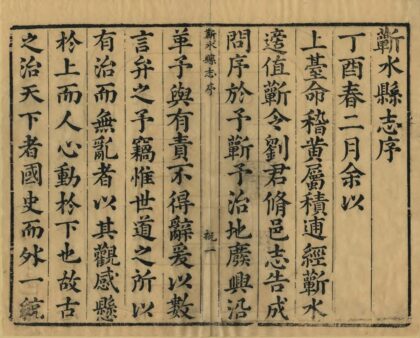 蘄水縣志序
丁酉春二月余以
上臺命稽黃屬積逋經蘄水
適值蘄令劉君脩邑志告成
問序於予蘄予治地廢興沿
蘄水縣志序
一
革予與有責不得辭爰以數
言弁之予竊惟世道之所以
有治而無亂者以其觀感懸
扵上而人心動扵下也故古
之治天下者國史而外一統